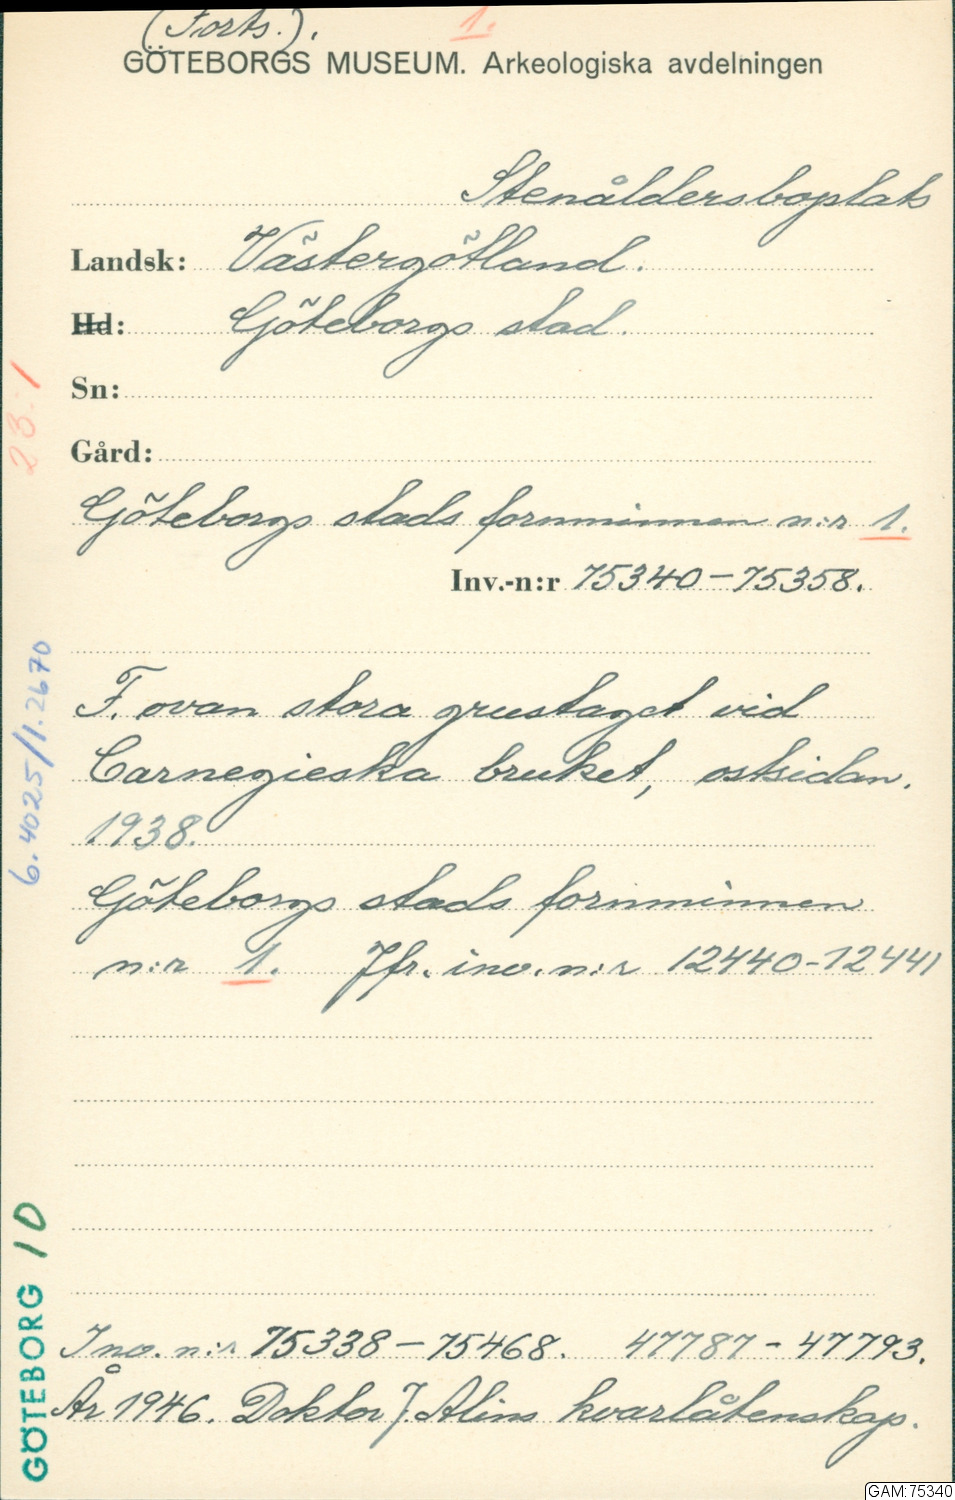 (Forts.).
1.
GÖTEBORGS MUSEUM. Arkeologiska avdelningen
Stenåldersboplats
Landsk: Västergötland.
Hd: Göteborgs stad.
Sn:
Gård:
Göteborgs stads fornminnen n:r 1.
Inv.-n:r 75340-75358.
F. ovan stora grustaget vid
Carnegieska bruket, ostsidan.
1938.
Göteborgs stads fornminnen
n:r 1. Jfr. inv. n:r 12440-12441
Inv. n:r 75338-75468. 47787-47793.
År 1946. Doktor J. Alins kvarlåtenskap.
23:1
6.4025/1.2670
GÖTEBORG 1D
GAM:75340